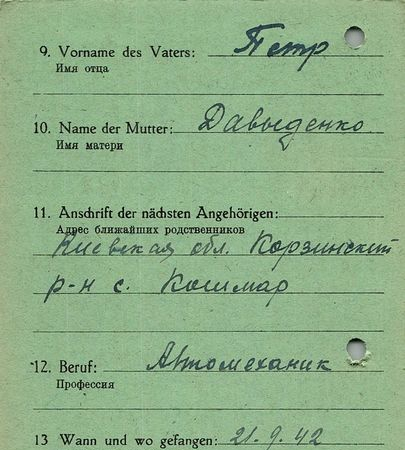 9. Vorname des Vaters: Петр
Имя отца
10. Name der Mutter: Давыденко
Имя матери
11. Anschrift der nächsten Angehörigen:
Адрес ближайших родственников
Киевская обл. Корзинский
р-н с. Кошмар
12. Beruf: Автомеханик
Профессия
13 Wann und wo gefangen: 21.9.42